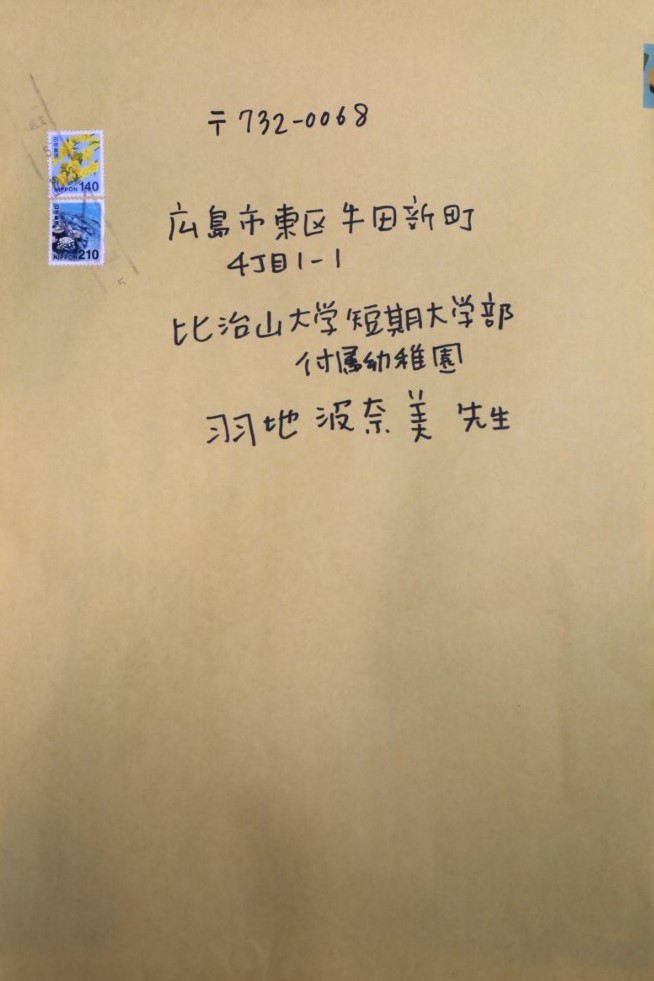 〒732-0068
広島市東区牛田新町
4丁目1-1
比治山大学短期大学部
付属幼稚園
羽地波奈美 先生
NIPPON 140
NIPPON 210